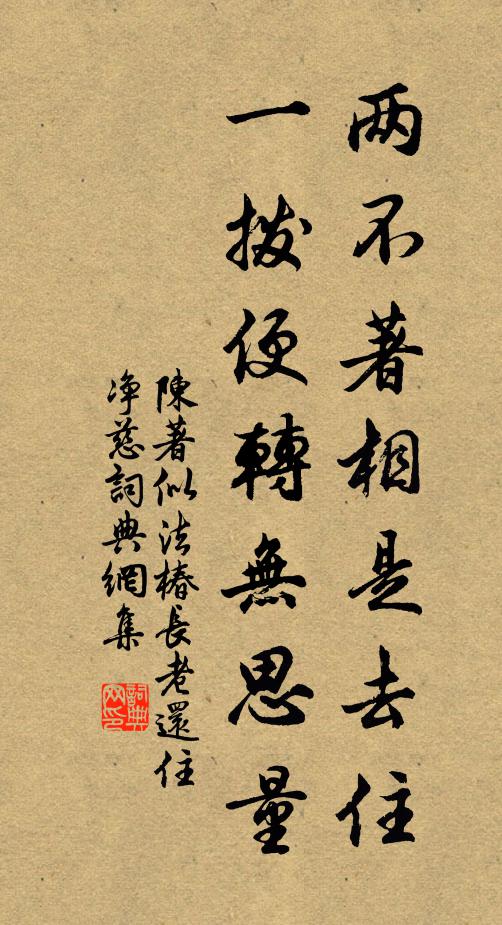 两不著相是去住
一拨便轉無思量
陳著似法椿長老還住
净慈詞典網集
詞典网印